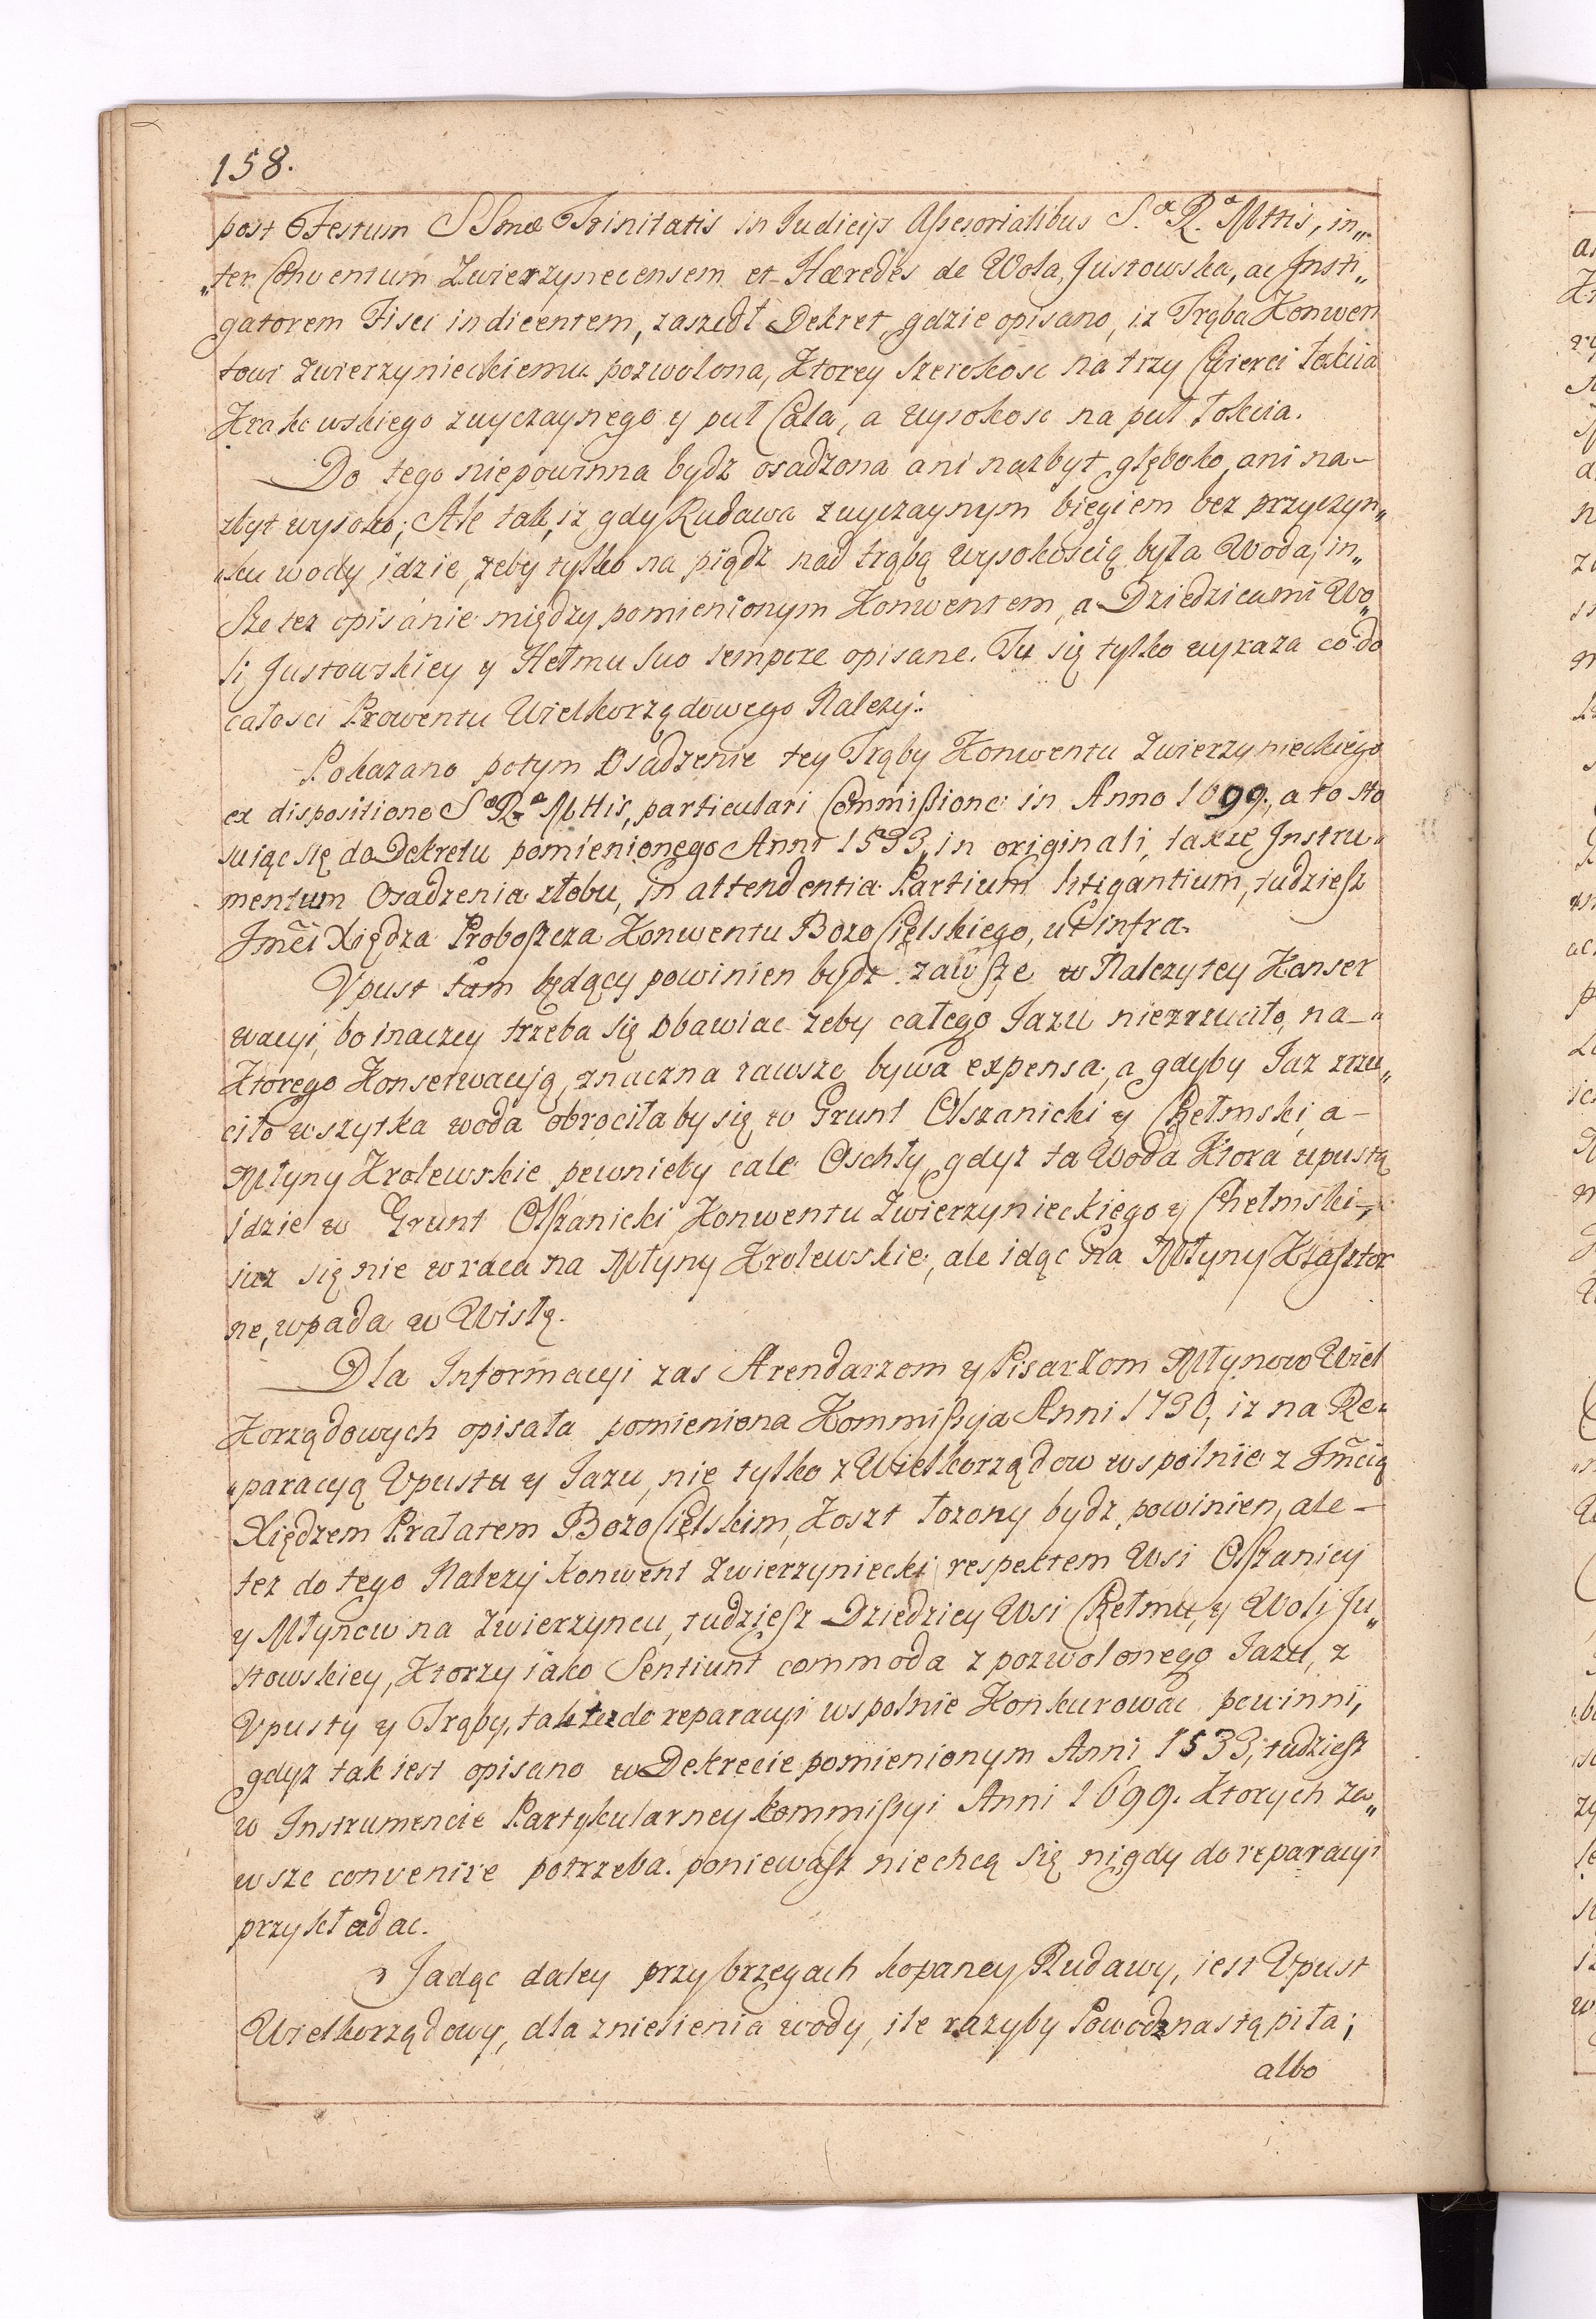 158.
post Festum SSmæ Trinitatis in Judicijs Aßesorialibus S.ª R.ª Mttis, in„
„ter Conventum Zwierzynecensem et Hæredes de Wola Justowska, ac Insti„
gatorem Fisci indicentem, zaszedł Dekret, gdzie opisano, iz Trąba Konwen
towi Zwierzynieckiemu pozwolona, Ktorey szerokosc na trzy Cwierci Łokcia
Krakowskiego zwyczaynego y puł Cala, a wysokosc na puł Łokcia.
Do tego niepowinna bydz osadzona ani nazbyt głęboko, ani na-
zbyt wysoko; Ale tak, iz gdy Rudawa zwyczaynym biegiem bez przyczyn„
„ku wody idzie, zeby tylko na piądz nad trąbą wysokoscią była Woda, in„
sze tez opisanie między pomienionym Konwentem, a Dziedzicami Wo„
li Justowskiey y Hełmu suo sempcze opisane. Tu się tylko wyraza co do
całosci Prowentu Wielkorządowego Nalezy.
Pokazano potym Osadzenie tey Trąby Konwentu Zwierzynieckiego
ex dispositione Sª Rª Mttis, particulari Commißione in Anno 1699., a to sto
suiąc się do Dekretu pomienionego Anni 1533, in originali, takze Instru„
mentum Osadzenia złobu, in attendentia Partium litigantium, tudziesz
Jmci Xiędza Proboszcza Konwentu Bozo Cielskiego, ut infra.
Vpust tam będący powinien bydz zawsze w Nalezytey Konser
wacyi, bo inaczey trzeba się obawiac zeby całego Jazu niezrzuciło, na-„
Ktorego Konserwacyą, znaczna zawsze bywa expensa, a gdyby Jaz zrzu„
ciło wszytka woda obrociłaby się w Grunt Olszanicki y Chełmski, a-
Młyny Krolewskie pewnieby cale Oschły, gdyz ta Woda Ktora upustą
idzie w Grunt Olszanicki Konwentu Zwierzynieckiego y Chełmski-,
iuz się nie wraca na Młyny Krolewskie, ale idąc na Młyny Klasztor
ne, wpada w Wisłę.
Dla Informacyi zas Arendarzom y Pisarzom Młynow Wiel
Korządowych opisała pomieniona Kommißyja Anni 1730, iz na Re„
„paracyą Vpustu y Jazu, nie tylko z Wielkorządow wspolnie z Jmcią
Xiędzem Prałatem Bozo Cielskim, Koszt łozony bydz powinien, ale-
tez do tego Nalezy Konwent Zwierzyniecki respektem Wsi Olszanicy
y Młynow na Zwierzyncu, tudziesz Dziedzicy Wsi Chełmu, y Woli Ju„
stowskiey, Ktorzy iako Sentiunt commoda z pozwolonego Jazu, z
Vpusty y Trąby, tak tez do reparacyi wspolnie Konkurowac powinni,
gdyz tak iest opisano w Dekrecie pomienionym Anni 1533, tudziesz
w Instrumencie Partykularney Kommißyi Anni 1699. Ktorych za„
wsze convenire potrzeba. poniewasz niechcą się nigdy do reparacyi
przykładac.
Jadąc daley przy brzegach kopaney Rudawy, iest Vpust
Wielkorządowy, dla zniesienia wody, ile razyby Powodz nastąpiła;
albo